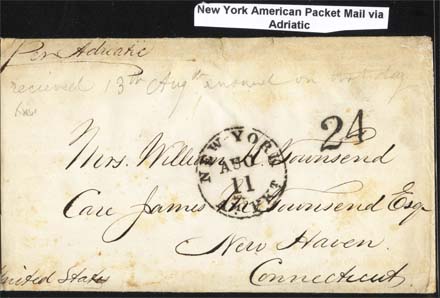 New York American Packet Mail via
Adriatic
Per Adriatic
recieved 13th Augt answered on
24
NEW YORK
AUG
11
Mrs. William Townsend
Care James Townsend Esq
New Haven.
Connecticut.
United States